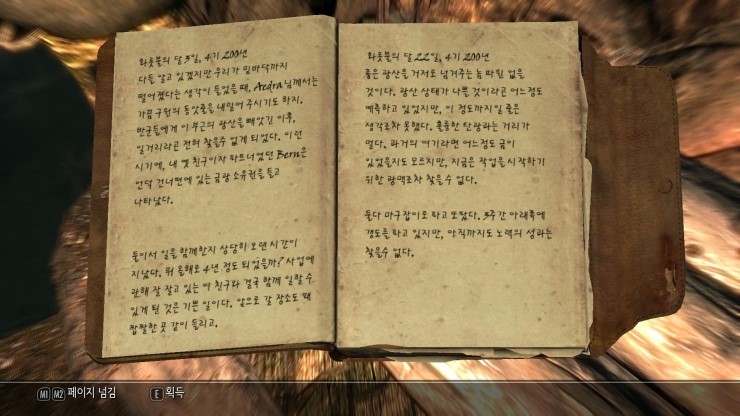 화롯불의 달 5일, 4기 200년
다들 알고 있겠지만 우리가 밑바닥까지
떨어졌다는 생각이 들었을 때, Aedra 님께서는
가끔 구원의 동앗줄을 내밀어 주시기도 하지.
반군들에게 이 부근의 광산을 빼앗긴 이후,
일거리라고 전혀 찾을수 없게 되었다. 이런
시기에, 내 옛 친구이자 파트너였던 Bern은
언덕 건너편에 있는 금광 소유권을 들고
나타났다.
둘이서 일을 함께한지 상당히 오랜 시간이
지났다. 뭐 올해로 4년 정도 되었을까? 사업에
관해 잘 알고 있는 이 친구와 결국 함께 일할 수
있게 된 것은 기쁜 일이다. 앞으로 갈 장소도 꽤
짭짤한 곳 같이 들리고.
화롯불의 달 22일, 4기 200년
좁은 광산을 거저로 넘겨주는 놈 따윈 없을
것이다. 광산 상태가 나쁠 것이라고 어느정도
예측하고 있었지만, 이 정도까지일 줄은
생각조차 못했다. 훌륭한 탄광과는 거리가
멀다. 과거의 여기라면 어느정도 금이
있었을지도 모르지만, 지금은 작업을 시작하기
위한 광맥조차 찾을수 없다.
둘다 마구잡이로 파고 또팠다. 3주간 아래쪽에
갱도를 파고 있지만, 아직까지도 노력의 성과는
찾을수 없다.
M1 M2 페이지 넘김
E 획득